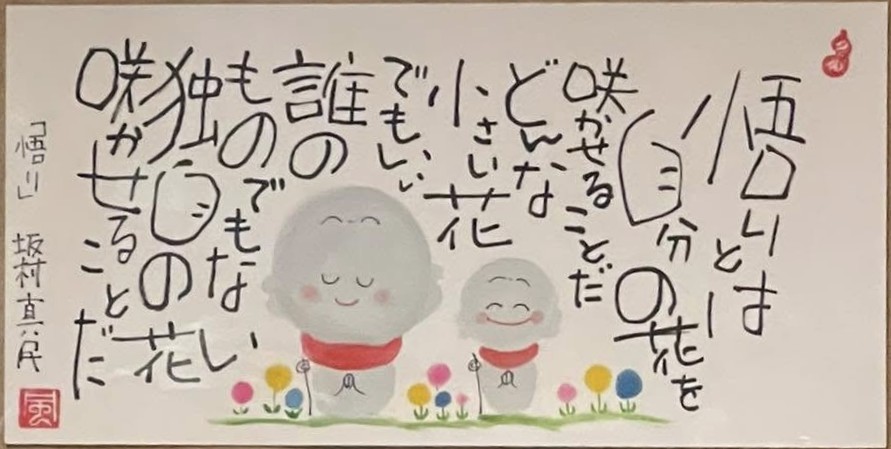 悟りとは
自分の花を
咲かせることだ
どんな
小さい花
でもいい
誰の
ものでもない
独自の花
咲かせることだ
「悟り」 坂村真民
風